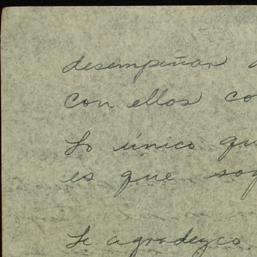 desempeñan
con ellos co
Lo único qu
es que soy
Le agradezco